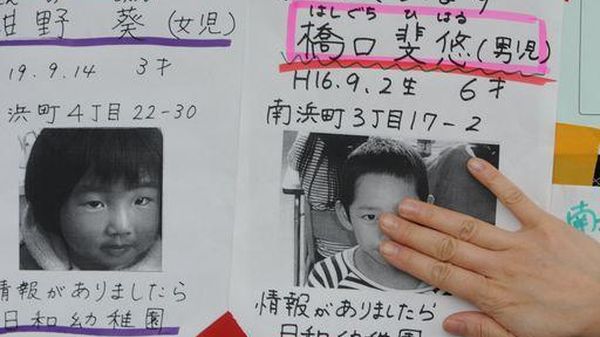 野 葵(女児)
19.9.14 3才
浜町4丁目22-30
情報がありましたら
日和幼稚園
はしぐち ひ はる
橋口 斐悠(男児)
H16.9.2生 6才
南浜町3丁目17-2
情報がありましたら
日和幼稚園
南